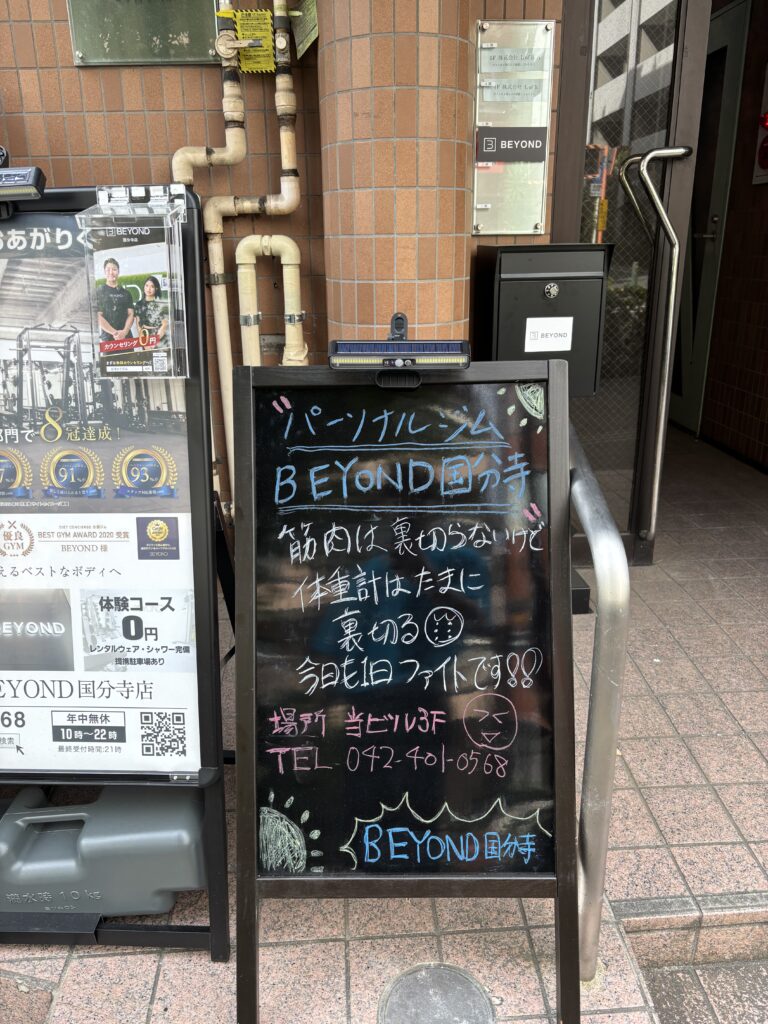 おあがりく
BEYOND
カウンセリング0円
部門で8冠達成!
91%
93%
優良
GYM
BEST GYM AWARD 2020 受賞
BEYOND 様
えるベストなボディへ
BEYOND
体験コース
0円
レンタルウェア・シャワー完備
提携駐車場あり
BEYOND国分寺店
68
検索
年中無休
10時〜22時
最終受付時間:21時
満水時 10kg
BEYOND
BEYOND
パーソナルジム
BEYOND国分寺
筋肉は裏切らないけど
体重計はたまに
裏切る
今日も1日ファイトです!!
場所 当ビル3F
TEL 042-401-0568
BEYOND国分寺